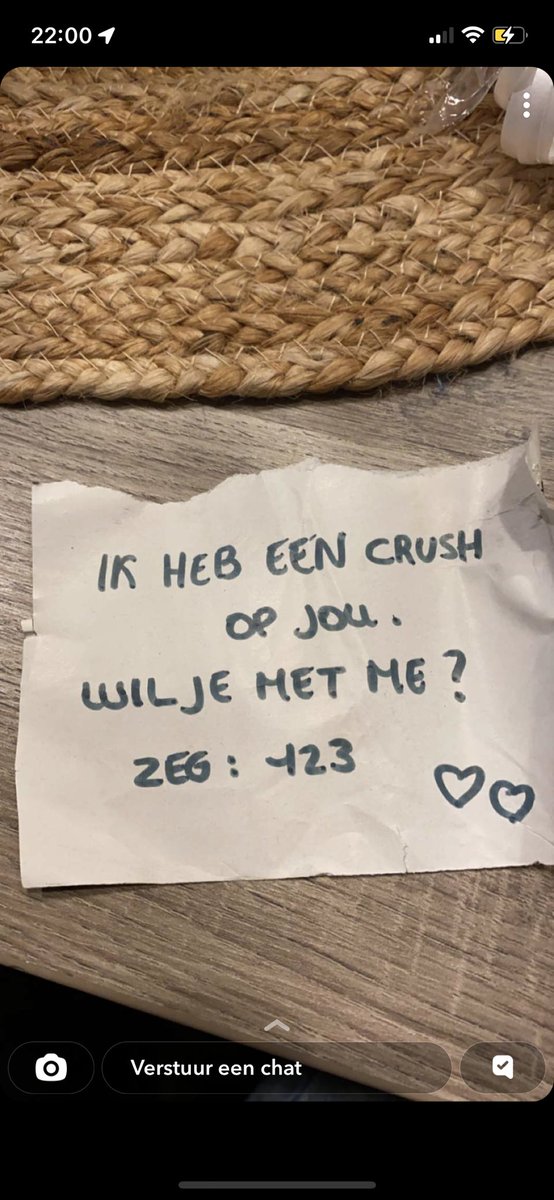 22:00
IK HEB EEN CRUSH
OP JOU.
WIL JE MET ME?
ZEG: 123
Verstuur een chat